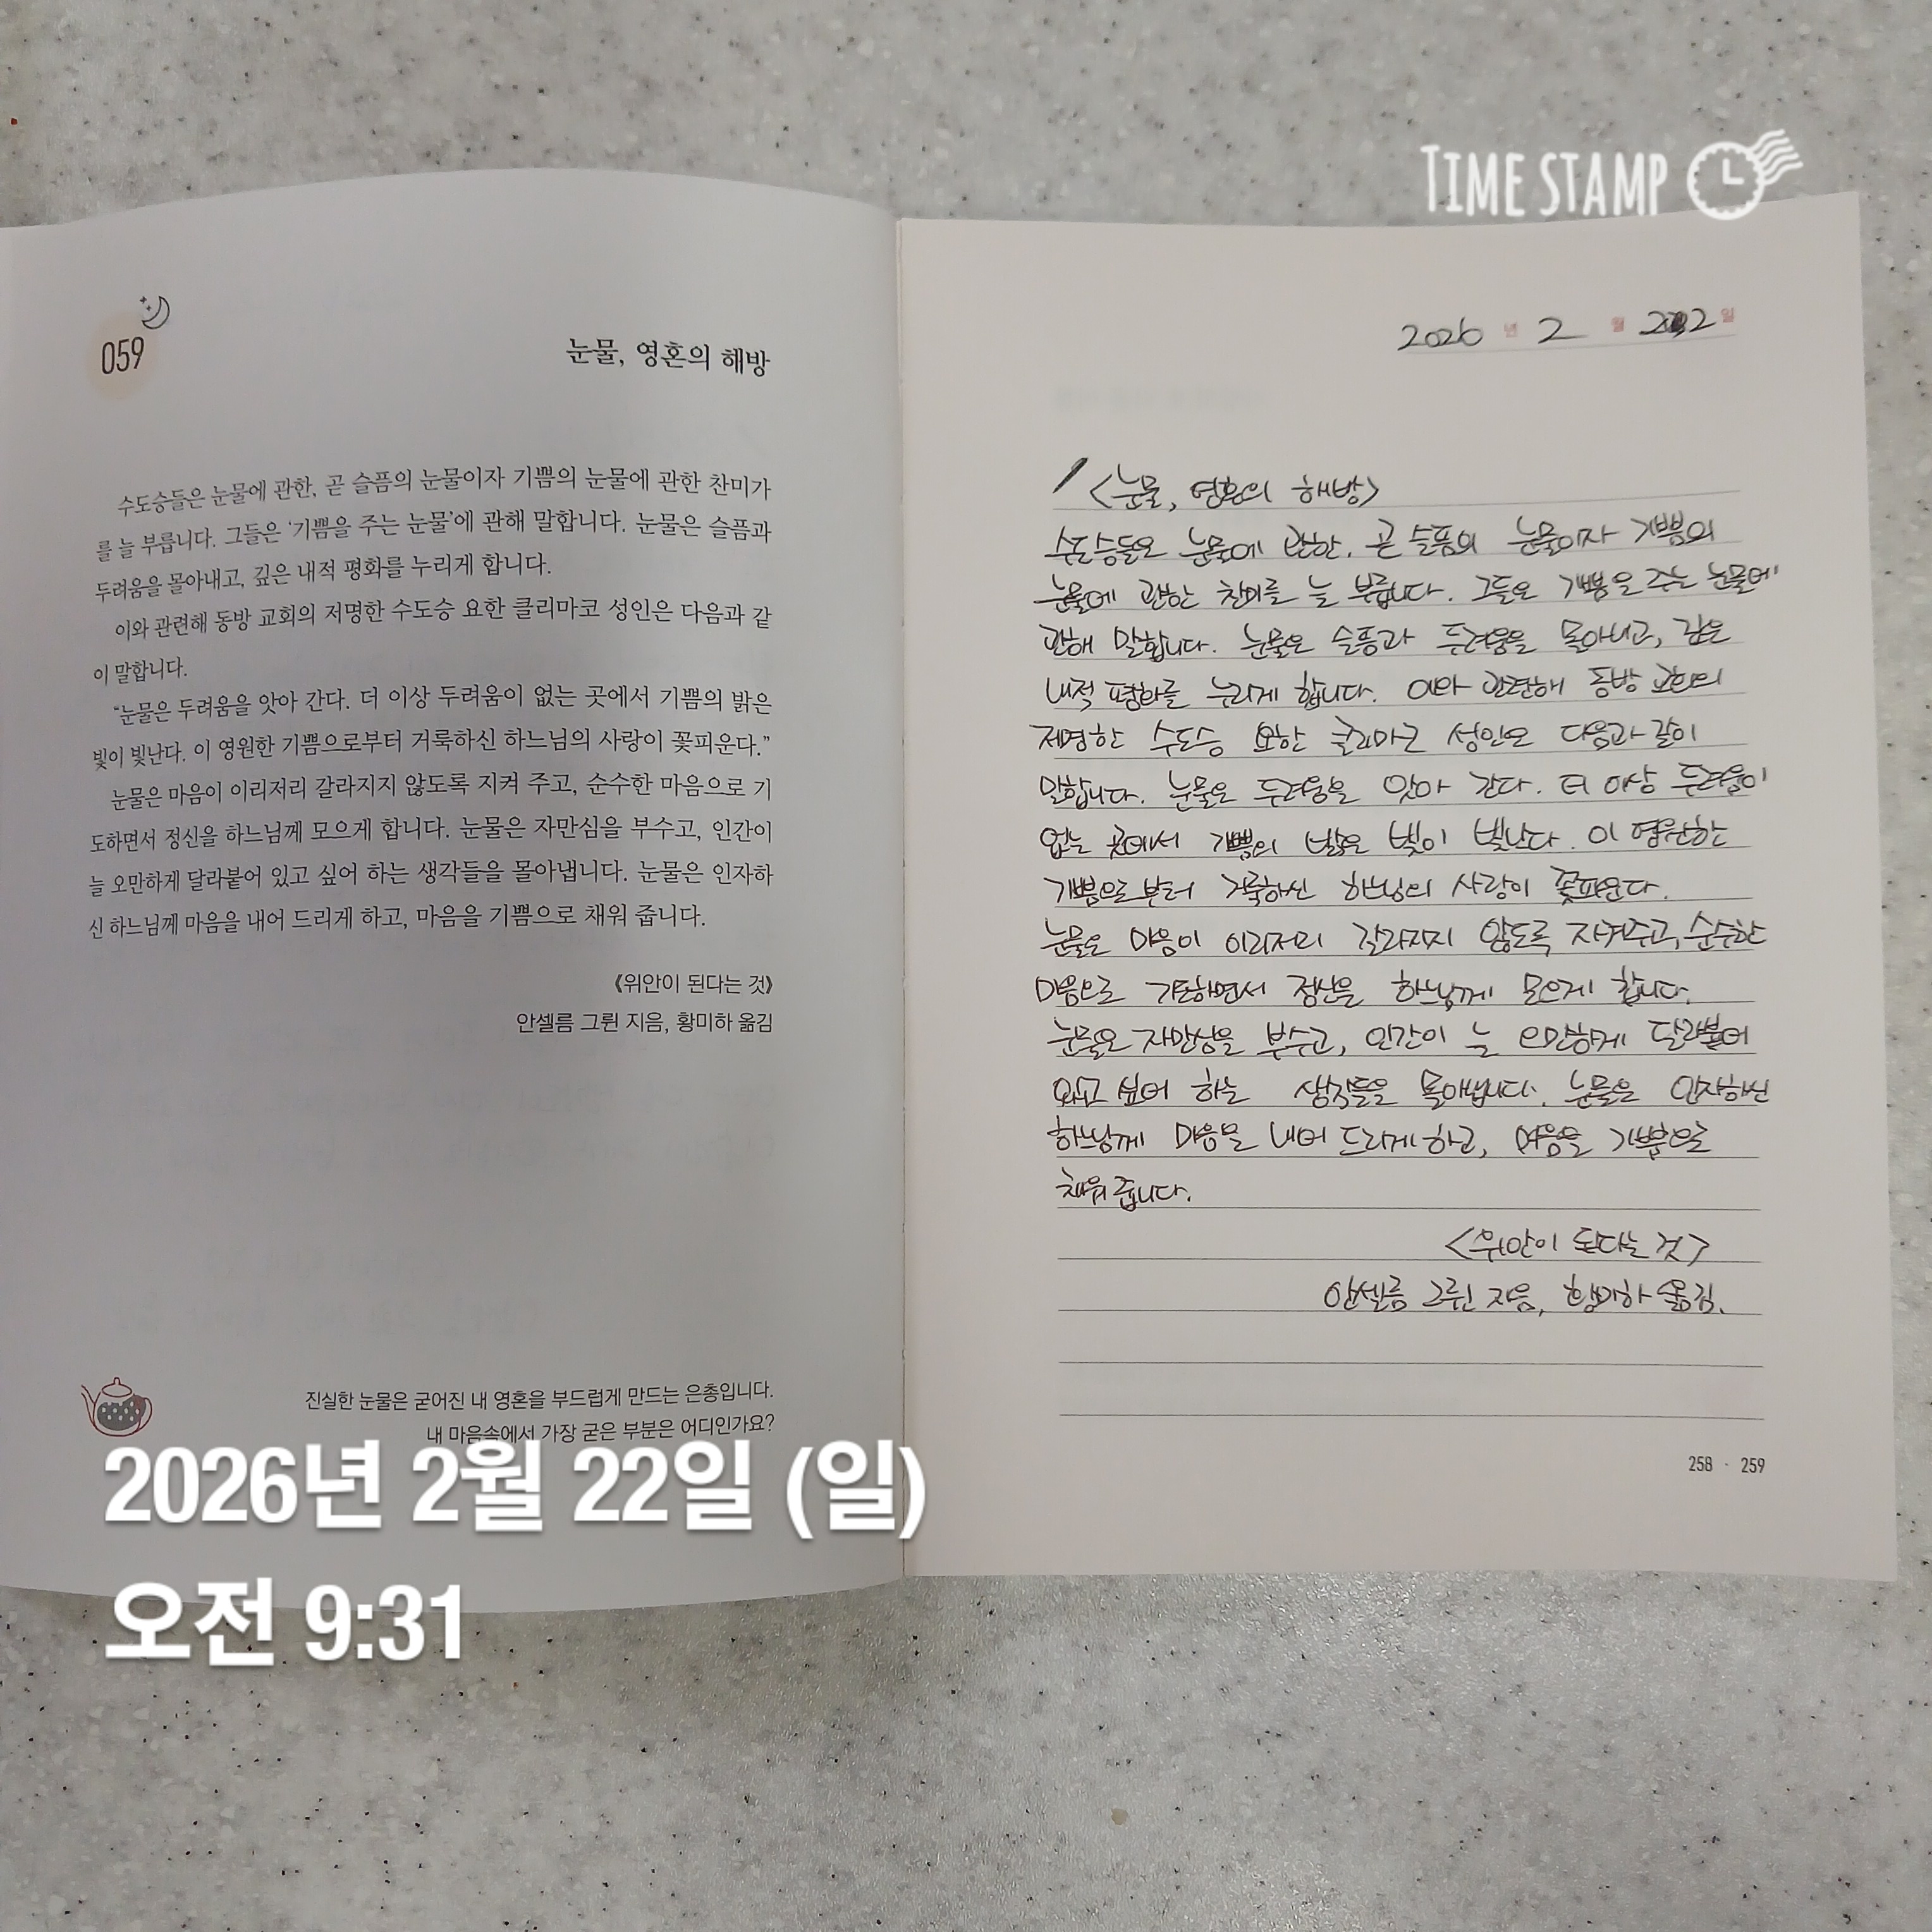 TIME STAMP
059
눈물, 영혼의 해방
수도승들은 눈물에 관한, 곧 슬픔의 눈물이자 기쁨의 눈물에 관한 찬미가
를 늘 부릅니다. 그들은 ‘기쁨을 주는 눈물’에 관해 말합니다. 눈물은 슬픔과
두려움을 몰아내고, 깊은 내적 평화를 누리게 합니다.
이와 관련해 동방 교회의 저명한 수도승 요한 클리마코 성인은 다음과 같
이 말합니다.
“눈물은 두려움을 앗아 간다. 더 이상 두려움이 없는 곳에서 기쁨의 밝은
빛이 빛난다. 이 영원한 기쁨으로부터 거룩하신 하느님의 사랑이 꽃피운다.”
눈물은 마음이 이리저리 갈라지지 않도록 지켜 주고, 순수한 마음으로 기
도하면서 정신을 하느님께 모으게 합니다. 눈물은 자만심을 부수고, 인간이
늘 오만하게 달라붙어 있고 싶어 하는 생각들을 몰아냅니다. 눈물은 인자하
신 하느님께 마음을 내어 드리게 하고, 마음을 기쁨으로 채워 줍니다.
《위안이 된다는 것》
안셀름 그륀 지음, 황미하 옮김
진실한 눈물은 굳어진 내 영혼을 부드럽게 만드는 은총입니다.
내 마음속에서 가장 굳은 부분은 어디인가요?
2026년 2월 22일 (일)
오전 9:31
2026 년 2 월 22 일
<눈물, 영혼의 해방>
수도승들은 눈물에 관한. 곧 슬픔의 눈물이자 기쁨의
눈물에 관한 찬미를 늘 부릅니다. 그들은 기쁨을 주는 눈물에
관해 말합니다. 눈물은 슬픔과 두려움을 몰아내고, 깊은
내적 평화를 누리게 합니다. 이와 관련해 동방 교회의
저명한 수도승 요한 클리마코 성인은 다음과 같이
말합니다. 눈물은 두려움을 앗아 간다. 더 이상 두려움이
없는 곳에서 기쁨의 밝은 빛이 빛난다. 이 영원한
기쁨으로부터 거룩하신 하느님의 사랑이 꽃피운다.
눈물은 마음이 이리저리 갈라지지 않도록 지켜주고, 순수한
마음으로 기도하면서 정신을 하느님께 모으게 합니다.
눈물은 자만심을 부수고, 인간이 늘 오만하게 달라붙어
있고 싶어 하는 생각들을 몰아냅니다. 눈물은 인자하신
하느님께 마음을 내어 드리게 하고, 마음을 기쁨으로
채워 줍니다.
<위안이 된다는 것>
안셀름 그륀 지음, 황미하 옮김.
258 · 259